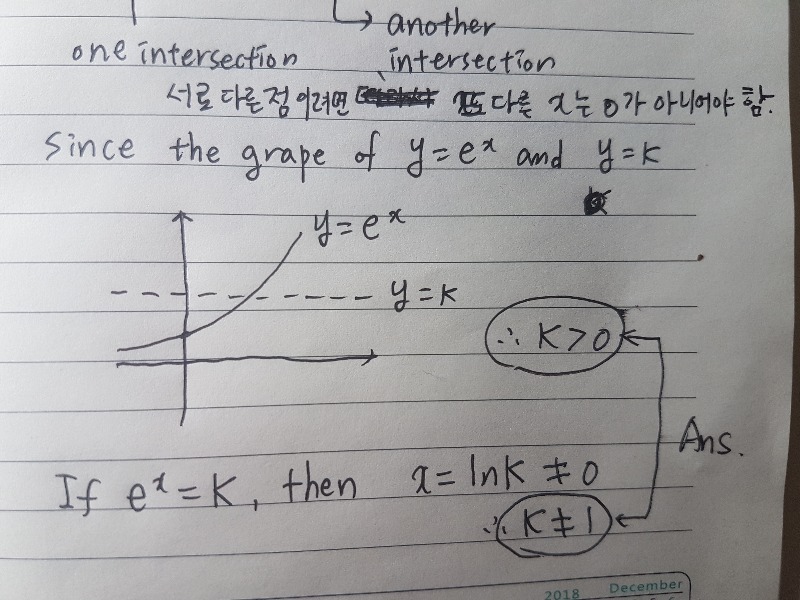 another
one intersection intersection
서로 다른 점 이려면 또 다른 x는 0가 아니어야 함.
Since the grape of y=eˣ and y=k
y=eˣ
y=k
∴ k>0
Ans.
If eˣ=k, then x=lnk≠0
∴ k≠1
2018 December